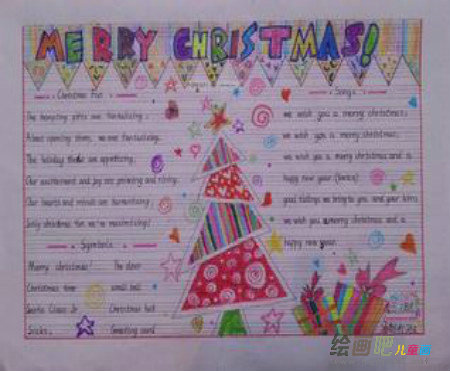 MERRY CHRISTMAS!
Christmas Fun
The tempting gifts are tantalizing.
Almost opening them, we are fantasizing.
The holiday are appetizing.
Our excitement and joy are and
Our hearts and minds are harmonizing
Jolly christmas fun we're maximizing!
Symbols
Merry christmas! The deer
Christmas tree small bell
Santa Claus Jr Christmas hat
Socks. Greeting card
Song
we wish you a merry christmas;
we wish you a merry christmas;
we wish you a merry christmas and a
happy new year.
good tidings we bring to you and your
we wish you a merry christmas and a
happy new year.
绘画吧 儿童画